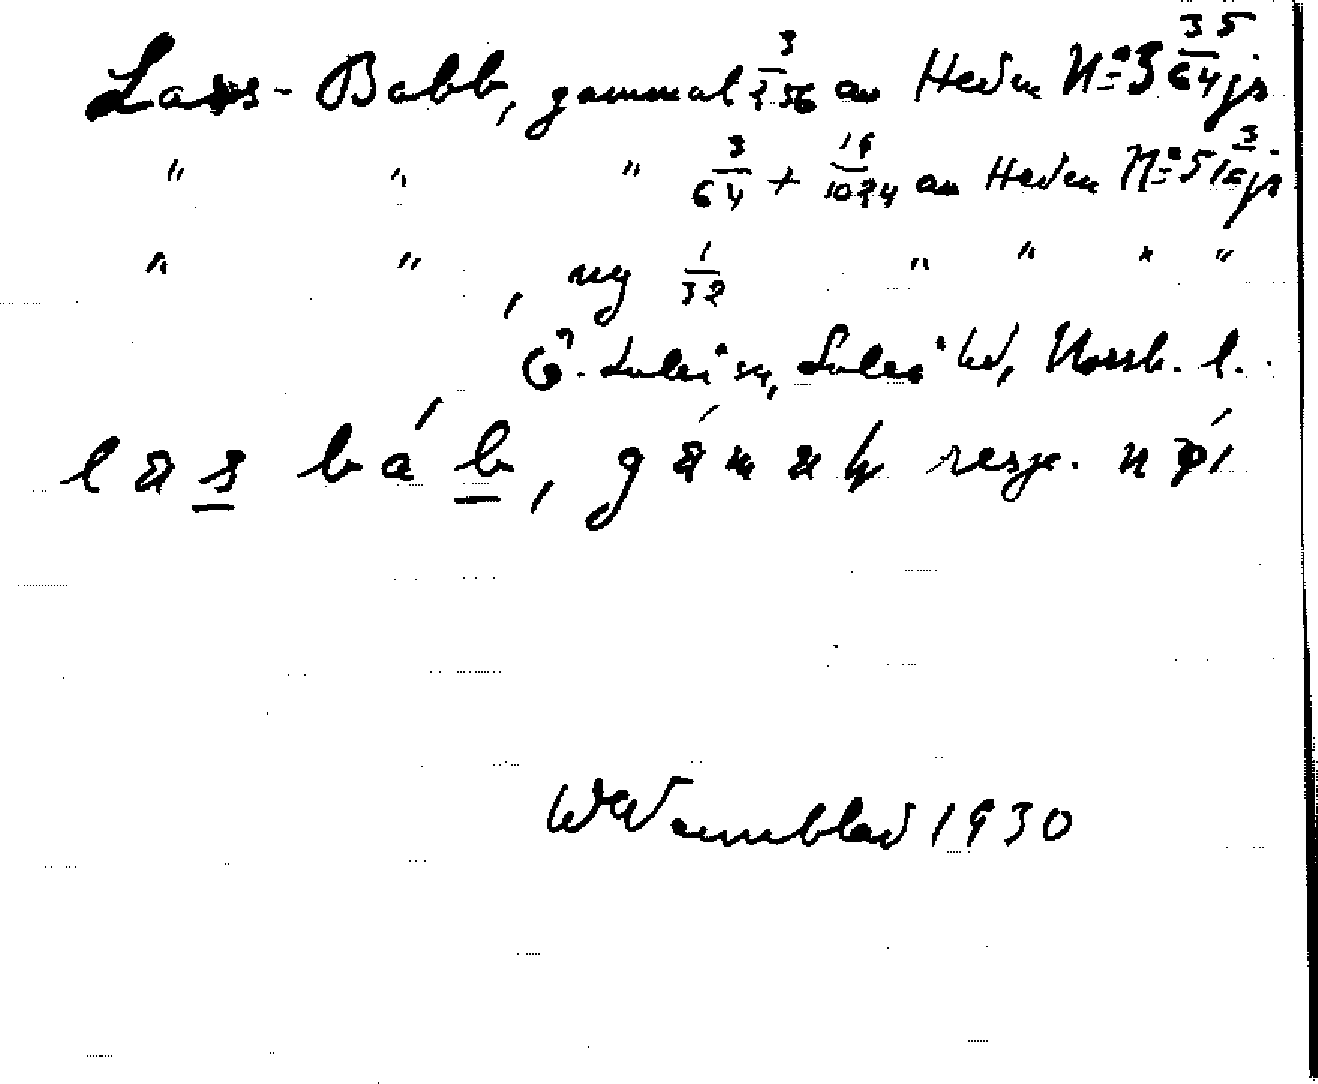 Lars-Babb, gammal 3/256 av Heden N:o 3 35/64 js
" " " 3/64 + 19/1024 av Heden N:o 5 1/6 js
" " , ny 1/32 " " " "
Ö. Luleå sn, Luleå td, Norrb. l.
resp.
W Wennblad 1930